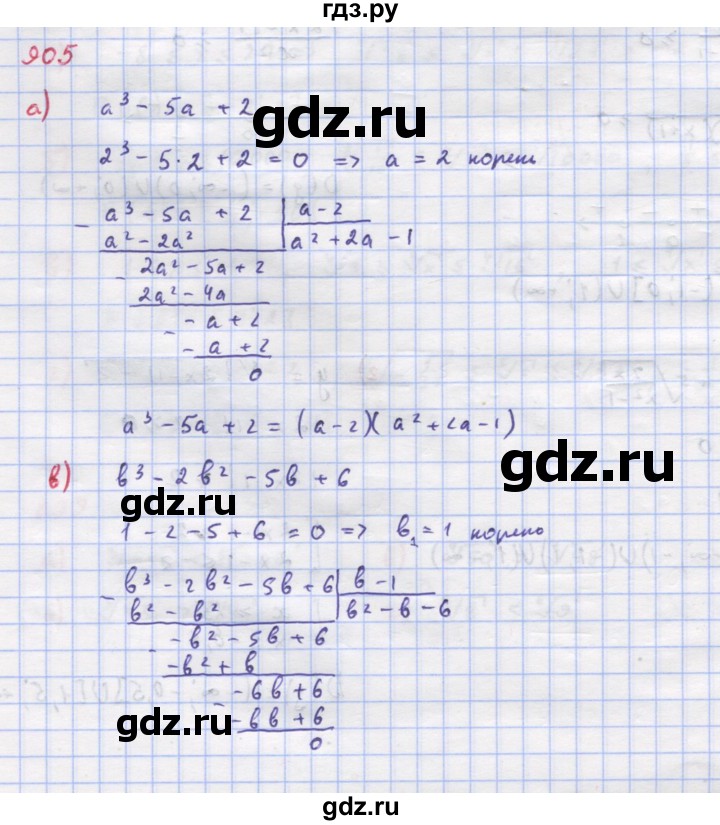 гдз.ру
905
а) a³ - 5a + 2
gdz.ru
2³ - 5·2 + 2 = 0 => a = 2 корень
- a³ - 5a + 2 | a - 2
a² - 2a² | a² + 2a - 1
- 2a² - 5a + 2
2a² - 4a
- - a + 2
- a + 2
0
a³ - 5a + 2 = (a - 2)(a² + 2a - 1)
gdz.ru
в) в³ - 2в² - 5в + 6
gdz.ru
1 - 2 - 5 + 6 = 0 => в₁ = 1 корень
- в³ - 2в² - 5в + 6 | в - 1
в² - в² | в² - в - 6
- - в² - 5в + 6
- в² + в
- - 6в + 6
gdz.ru
- 6в + 6
0
gdz.ru